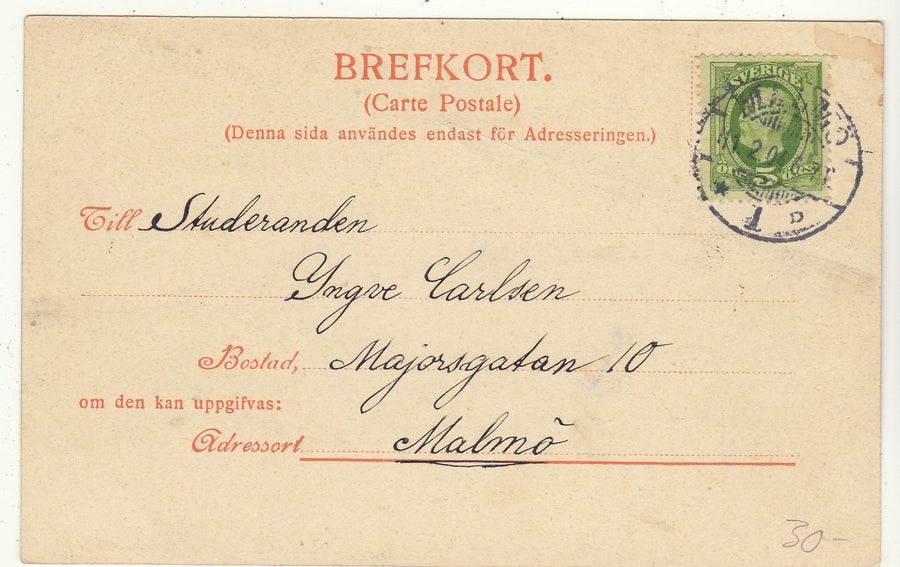 BREFKORT.
(Carte Postale)
(Denna sida användes endast för Adresseringen.)
SVERIGE
5
Till Studeranden
Yngve Carlsen
Bostad, Majorsgatan 10
om den kan uppgifvas:
Adressort Malmö
30-